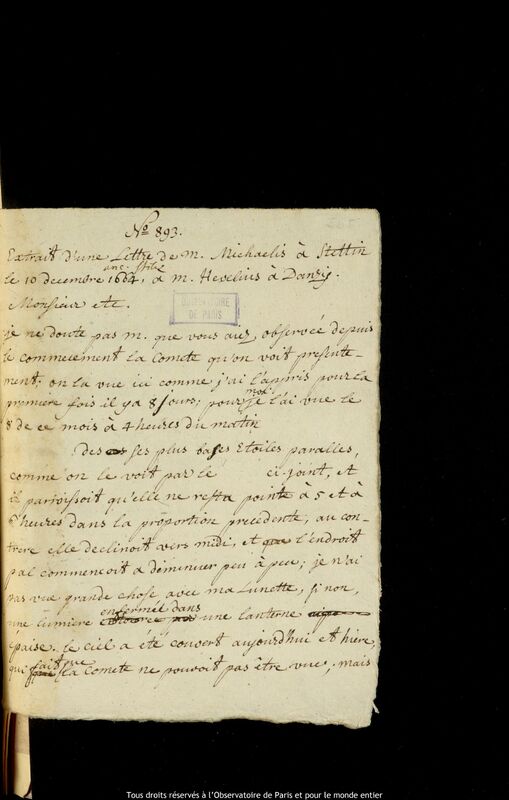 No 893.
Extrait d'une Lettre de m. Michaelis à Stettin
anc. stile
le 10 decembre 1664, à m. Hevelius à Danzig.
Monsieur etc.
OBSERVATOIRE
DE PARIS
je ne doute pas m. que vous aiez observée depuis
le commencement la Comete qu'on voit presente-
ment; on la vue ici comme j'ai l'appris pour la
premiere fois il y a 8 jours; pour moi je l'ai vue le
8 de ce mois à 4 heures du matin
des ses plus basses Etoiles paralles,
comme on le voit par le ci-joint, et
il paroissoit qu'elle ne resta pointe à 5 et à
6 heures dans la proportion precedente, au con-
trere elle declinoit vers midi, et l'endroit
pal commencoit a diminuer peu à peu; je n'ai
pas vue grande chose avec ma Lunette, si non,
enfermée dans
une lumiere une lanterne
épaise. le ciel a été couvert aujourd'hui et hière,
fait que
qui la Comete ne pouvoit pas être vue; mais
Tous droits réservés à l'Observatoire de Paris et pour le monde entier